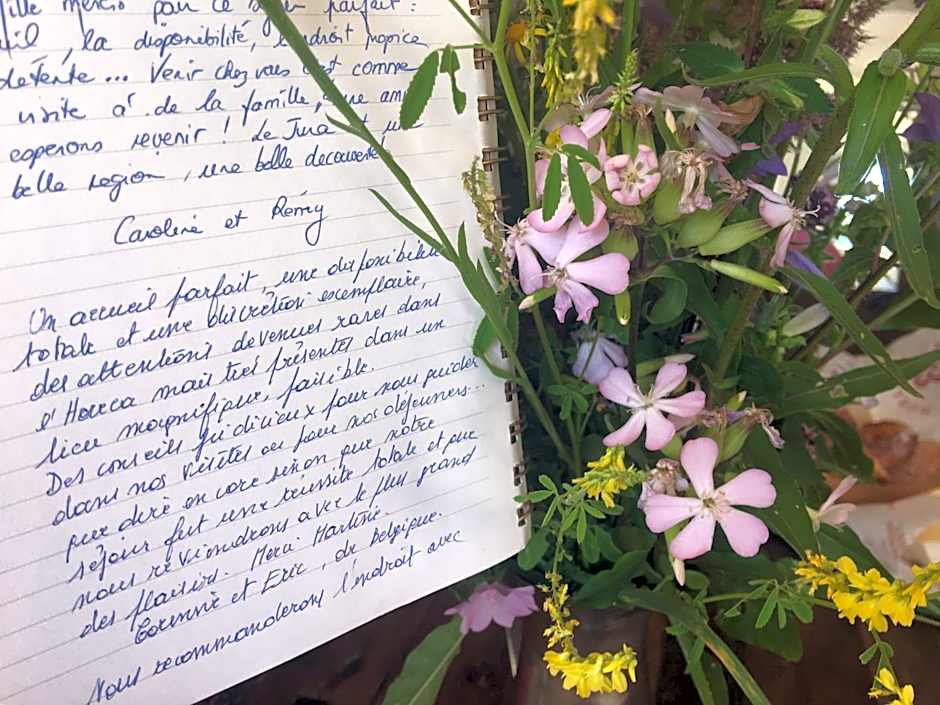 ille merci pour ce séjour parfait :
la disponibilité, endroit propice
détente... Venir chez vous est comme
visite à de la famille, une am
esperons revenir ! Le Jura est une
belle région, une belle découverte
Caroline et Rémy
Un accueil parfait, une disponibilité
totale et une discrétion exemplaire,
des attentions devenues rares dans
l'Horeca mais très présentes dans un
lieu magnifique, paisible.
Des conseils judicieux pour nous guider
dans nos visites ou pour nos déjeuners...
que dire encore sinon que notre
séjour fut une réussite totale et que
nous reviendrons avec le plus grand
des plaisirs. Merci Martine.
Corinne et Eric, de Belgique.
Nous recommanderons l'endroit avec